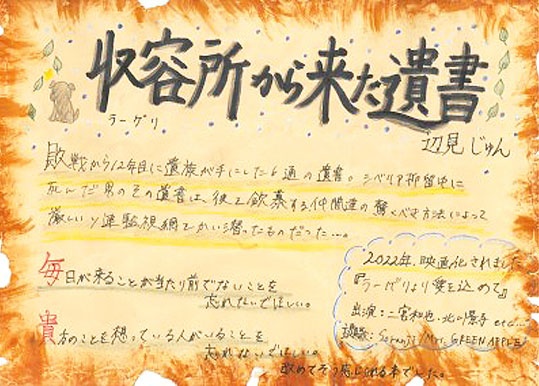 収容所から来た遺書
ラーゲリ
辺見じゅん
敗戦から12年目に遺族が手にした6通の遺書。シベリア抑留中に
死んだ男のその遺書は、彼を欽慕する仲間達の驚くべき方法によって
厳しいソ連監視網をかい潜ったものだった…。
毎日が来ることが当たり前でないことを
忘れないでほしい。
貴方のことを想っている人がいることを
忘れないでほしい。
改めてそう感じられる本でした。
2022年、映画化されました
『ラーゲリより愛を込めて』
出演:二宮和也・北川景子 etc...
主題歌:Soranji/Mrs. GREEN APPLE